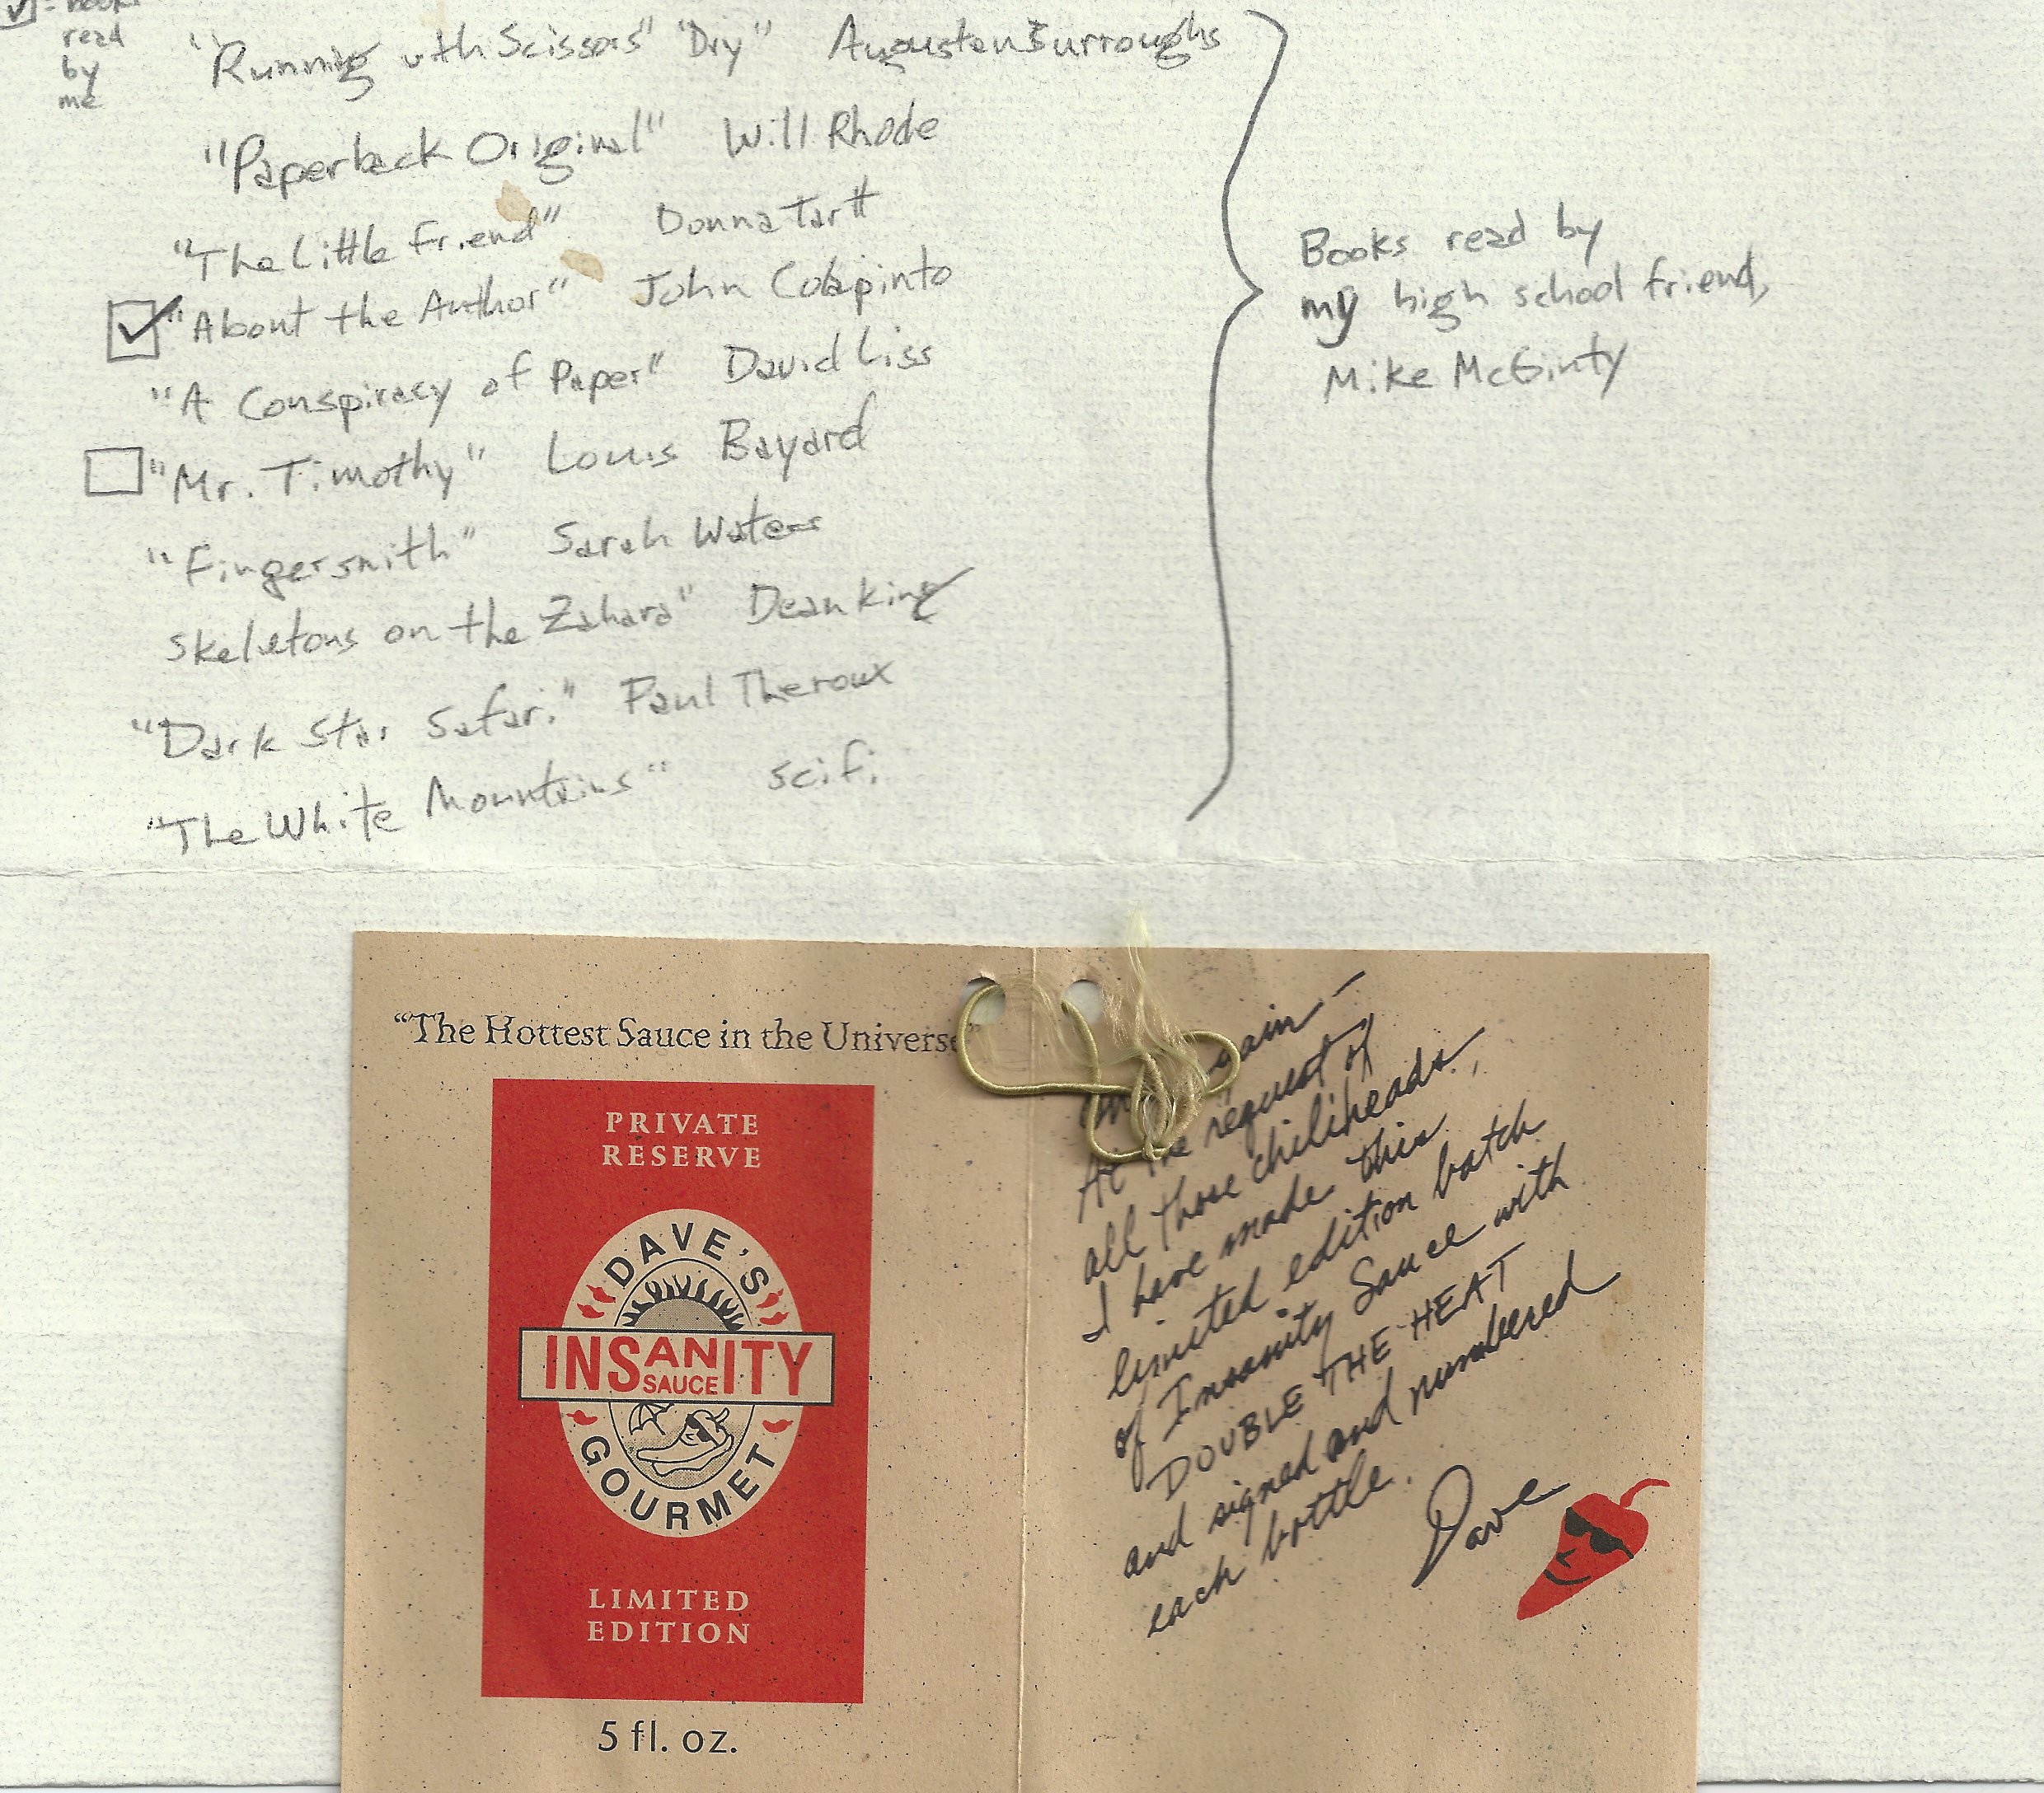 = book
read
by
me
"Running with Scissors" "Dry" Augusten Burroughs
"Paperback Original" Will Rhode
"The Little Friend" Donna Tartt
"About the Author" John Colapinto
"A Conspiracy of Paper" David Liss
"Mr. Timothy" Louis Bayard
"Fingersmith" Sarah Waters
Skeletons on the Zahara" Dean King
"Dark Star Safari" Paul Theroux
"The White Mountains" scifi
Books read by
my high school friend,
Mike McGinty
"The Hottest Sauce in the Universe
PRIVATE
RESERVE
DAVE'S
INSANITY
SAUCE
GOURMET
LIMITED
EDITION
5 fl. oz.
At the request of
all those chiliheads,
I have made this
limited edition batch
of Insanity Sauce with
DOUBLE THE HEAT
and signed and numbered
each bottle.
Dave